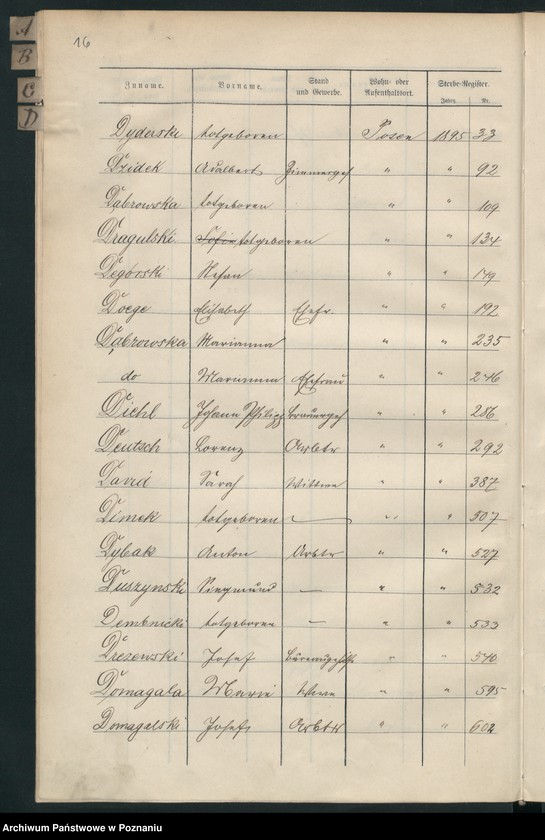 16
A
B
C
D
Zuname. Vorname. Stand und Gewerbe. Wohn- oder Aufenthaltsort. Sterbe-Register. Jahrg. Nr.
Dyderski totgeboren Posen 1895 33
Dzidek Adalbert Zimmerges " " 92
Dąbrowska totgeboren " " 109
Dragulski Sofie totgeboren " " 134
Degórski Stefan " " 149
Doege Elisabeth Ehefr. " " 192
Dąbrowska Marianna " " 235
do Marianna Ehefrau " " 246
Diehl Johann Philipp Brauerges " " 286
Deutsch Lorenz Arbtr " " 292
David Sarah Wittwe " " 387
Dimek totgeboren — " " 507
Dybak Anton Arbtr " " 527
Duszynski Siegmund — " " 532
Dembnicki totgeboren — " " 533
Drezewski Josef " " 540
Domagała Maria Wwe " " 595
Domagalski Josef Arbtr " " 602
Archiwum Państwowe w Poznaniu